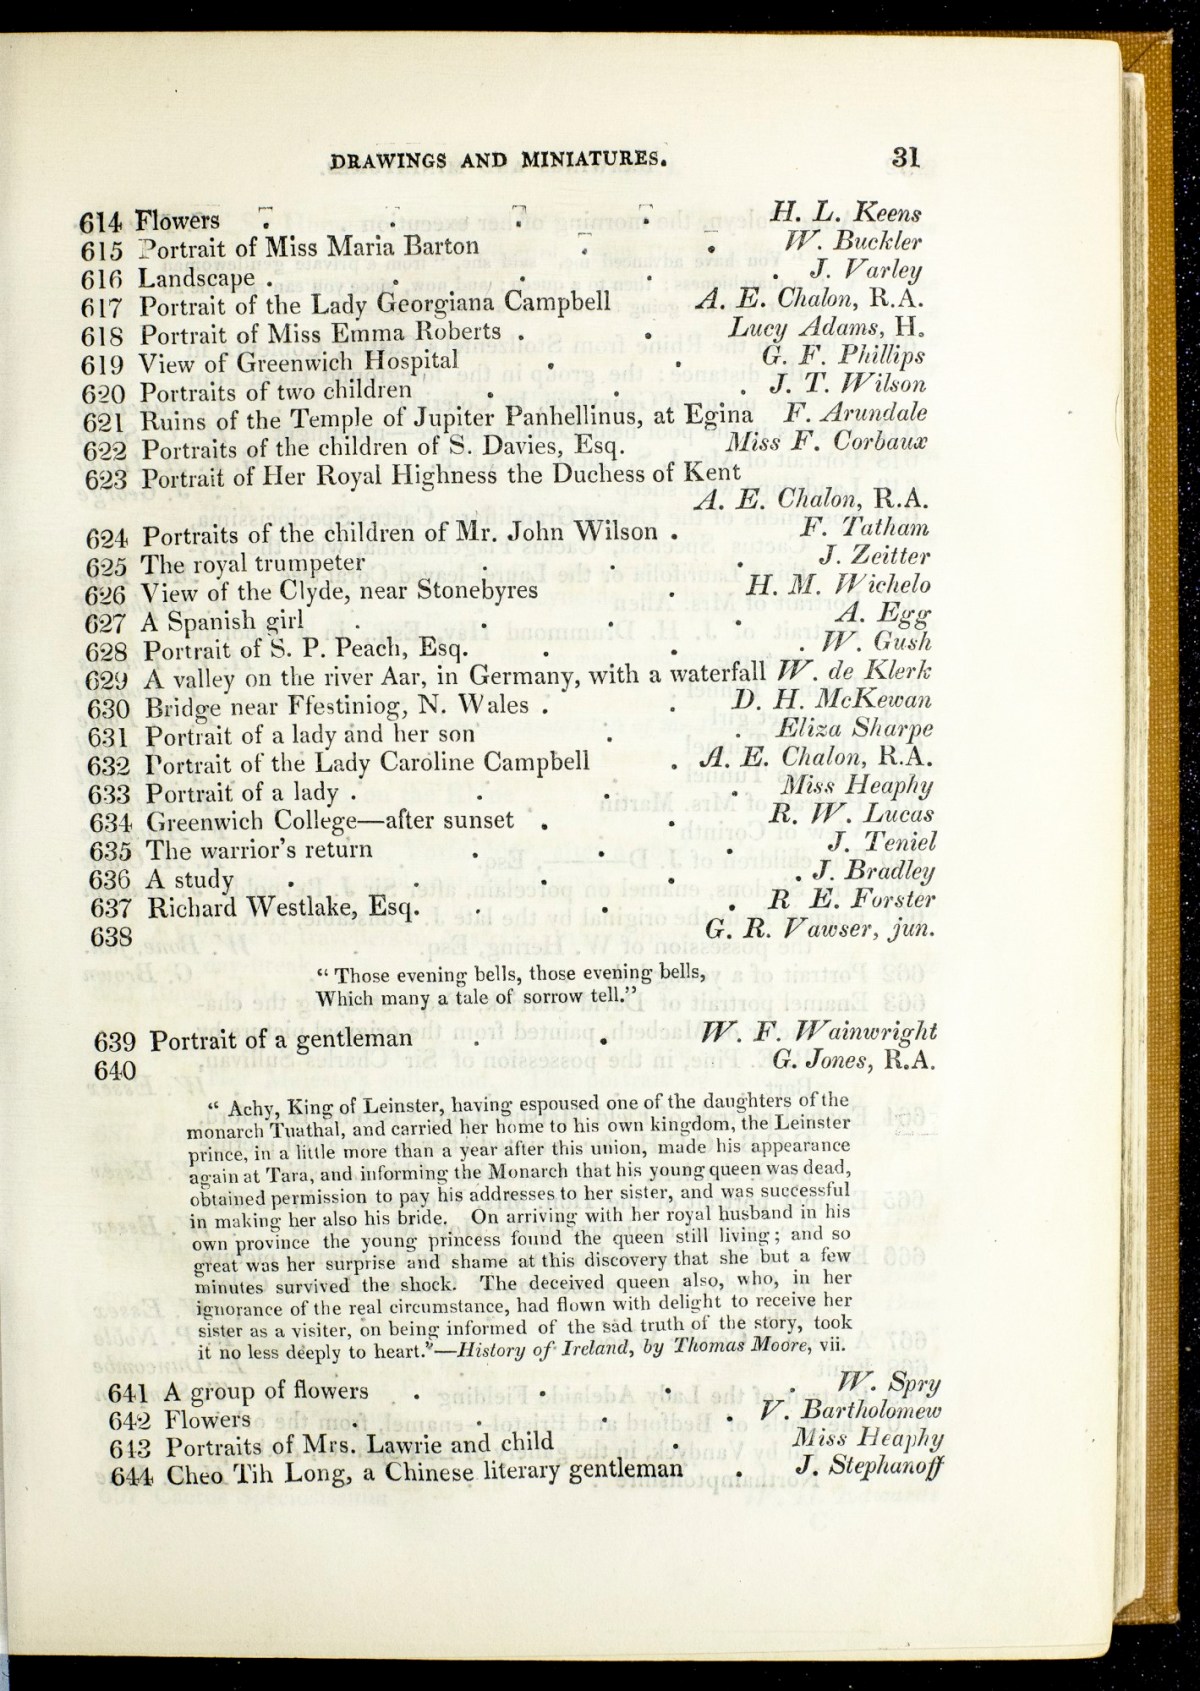 DRAWINGS AND MINIATURES. 31
614 Flowers . . . . H. L. Keens
615 Portrait of Miss Maria Barton . . W. Buckler
616 Landscape . . . . . J. Varley
617 Portrait of the Lady Georgiana Campbell A. E. Chalon, R.A.
618 Portrait of Miss Emma Roberts . . Lucy Adams, H.
619 View of Greenwich Hospital . . G. F. Phillips
620 Portraits of two children . . . J. T. Wilson
621 Ruins of the Temple of Jupiter Panhellinus, at Egina F. Arundale
622 Portraits of the children of S. Davies, Esq. Miss F. Corbaux
623 Portrait of Her Royal Highness the Duchess of Kent
A. E. Chalon, R.A.
624 Portraits of the children of Mr. John Wilson . F. Tatham
625 The royal trumpeter . . . J. Zeitter
626 View of the Clyde, near Stonebyres . H. M. Wichelo
627 A Spanish girl . . . . A. Egg
628 Portrait of S. P. Peach, Esq. . . . W. Gush
629 A valley on the river Aar, in Germany, with a waterfall W. de Klerk
630 Bridge near Ffestiniog, N. Wales . . D. H. McKewan
631 Portrait of a lady and her son . . Eliza Sharpe
632 Portrait of the Lady Caroline Campbell . A. E. Chalon, R.A.
633 Portrait of a lady . . . . Miss Heaphy
634 Greenwich College—after sunset . . R. W. Lucas
635 The warrior's return . . . J. Teniel
636 A study . . . . . J. Bradley
637 Richard Westlake, Esq. . . . R E. Forster
638 G. R. Vawser, jun.
“ Those evening bells, those evening bells,
Which many a tale of sorrow tell.”
639 Portrait of a gentleman . . W. F. Wainwright
640 G. Jones, R.A.
“ Achy, King of Leinster, having espoused one of the daughters of the
monarch Tuathal, and carried her home to his own kingdom, the Leinster
prince, in a little more than a year after this union, made his appearance
again at Tara, and informing the Monarch that his young queen was dead,
obtained permission to pay his addresses to her sister, and was successful
in making her also his bride. On arriving with her royal husband in his
own province the young princess found the queen still living; and so
great was her surprise and shame at this discovery that she but a few
minutes survived the shock. The deceived queen also, who, in her
ignorance of the real circumstance, had flown with delight to receive her
sister as a visiter, on being informed of the sad truth of the story, took
it no less deeply to heart.”—History of Ireland, by Thomas Moore, vii.
641 A group of flowers . . . . W. Spry
642 Flowers . . . . V. Bartholomew
643 Portraits of Mrs. Lawrie and child . Miss Heaphy
644 Cheo Tih Long, a Chinese literary gentleman . J. Stephanoff